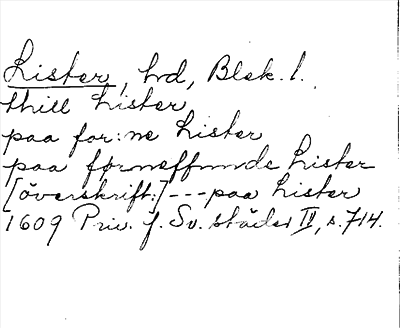 Lister, hd, Blek. l.
thill Lister
paa for:ne Lister
paa førneffnnde Lister
[överskrift:] --- paa Lister
1609 Priv. f. Sv. städer IV, s. 714.